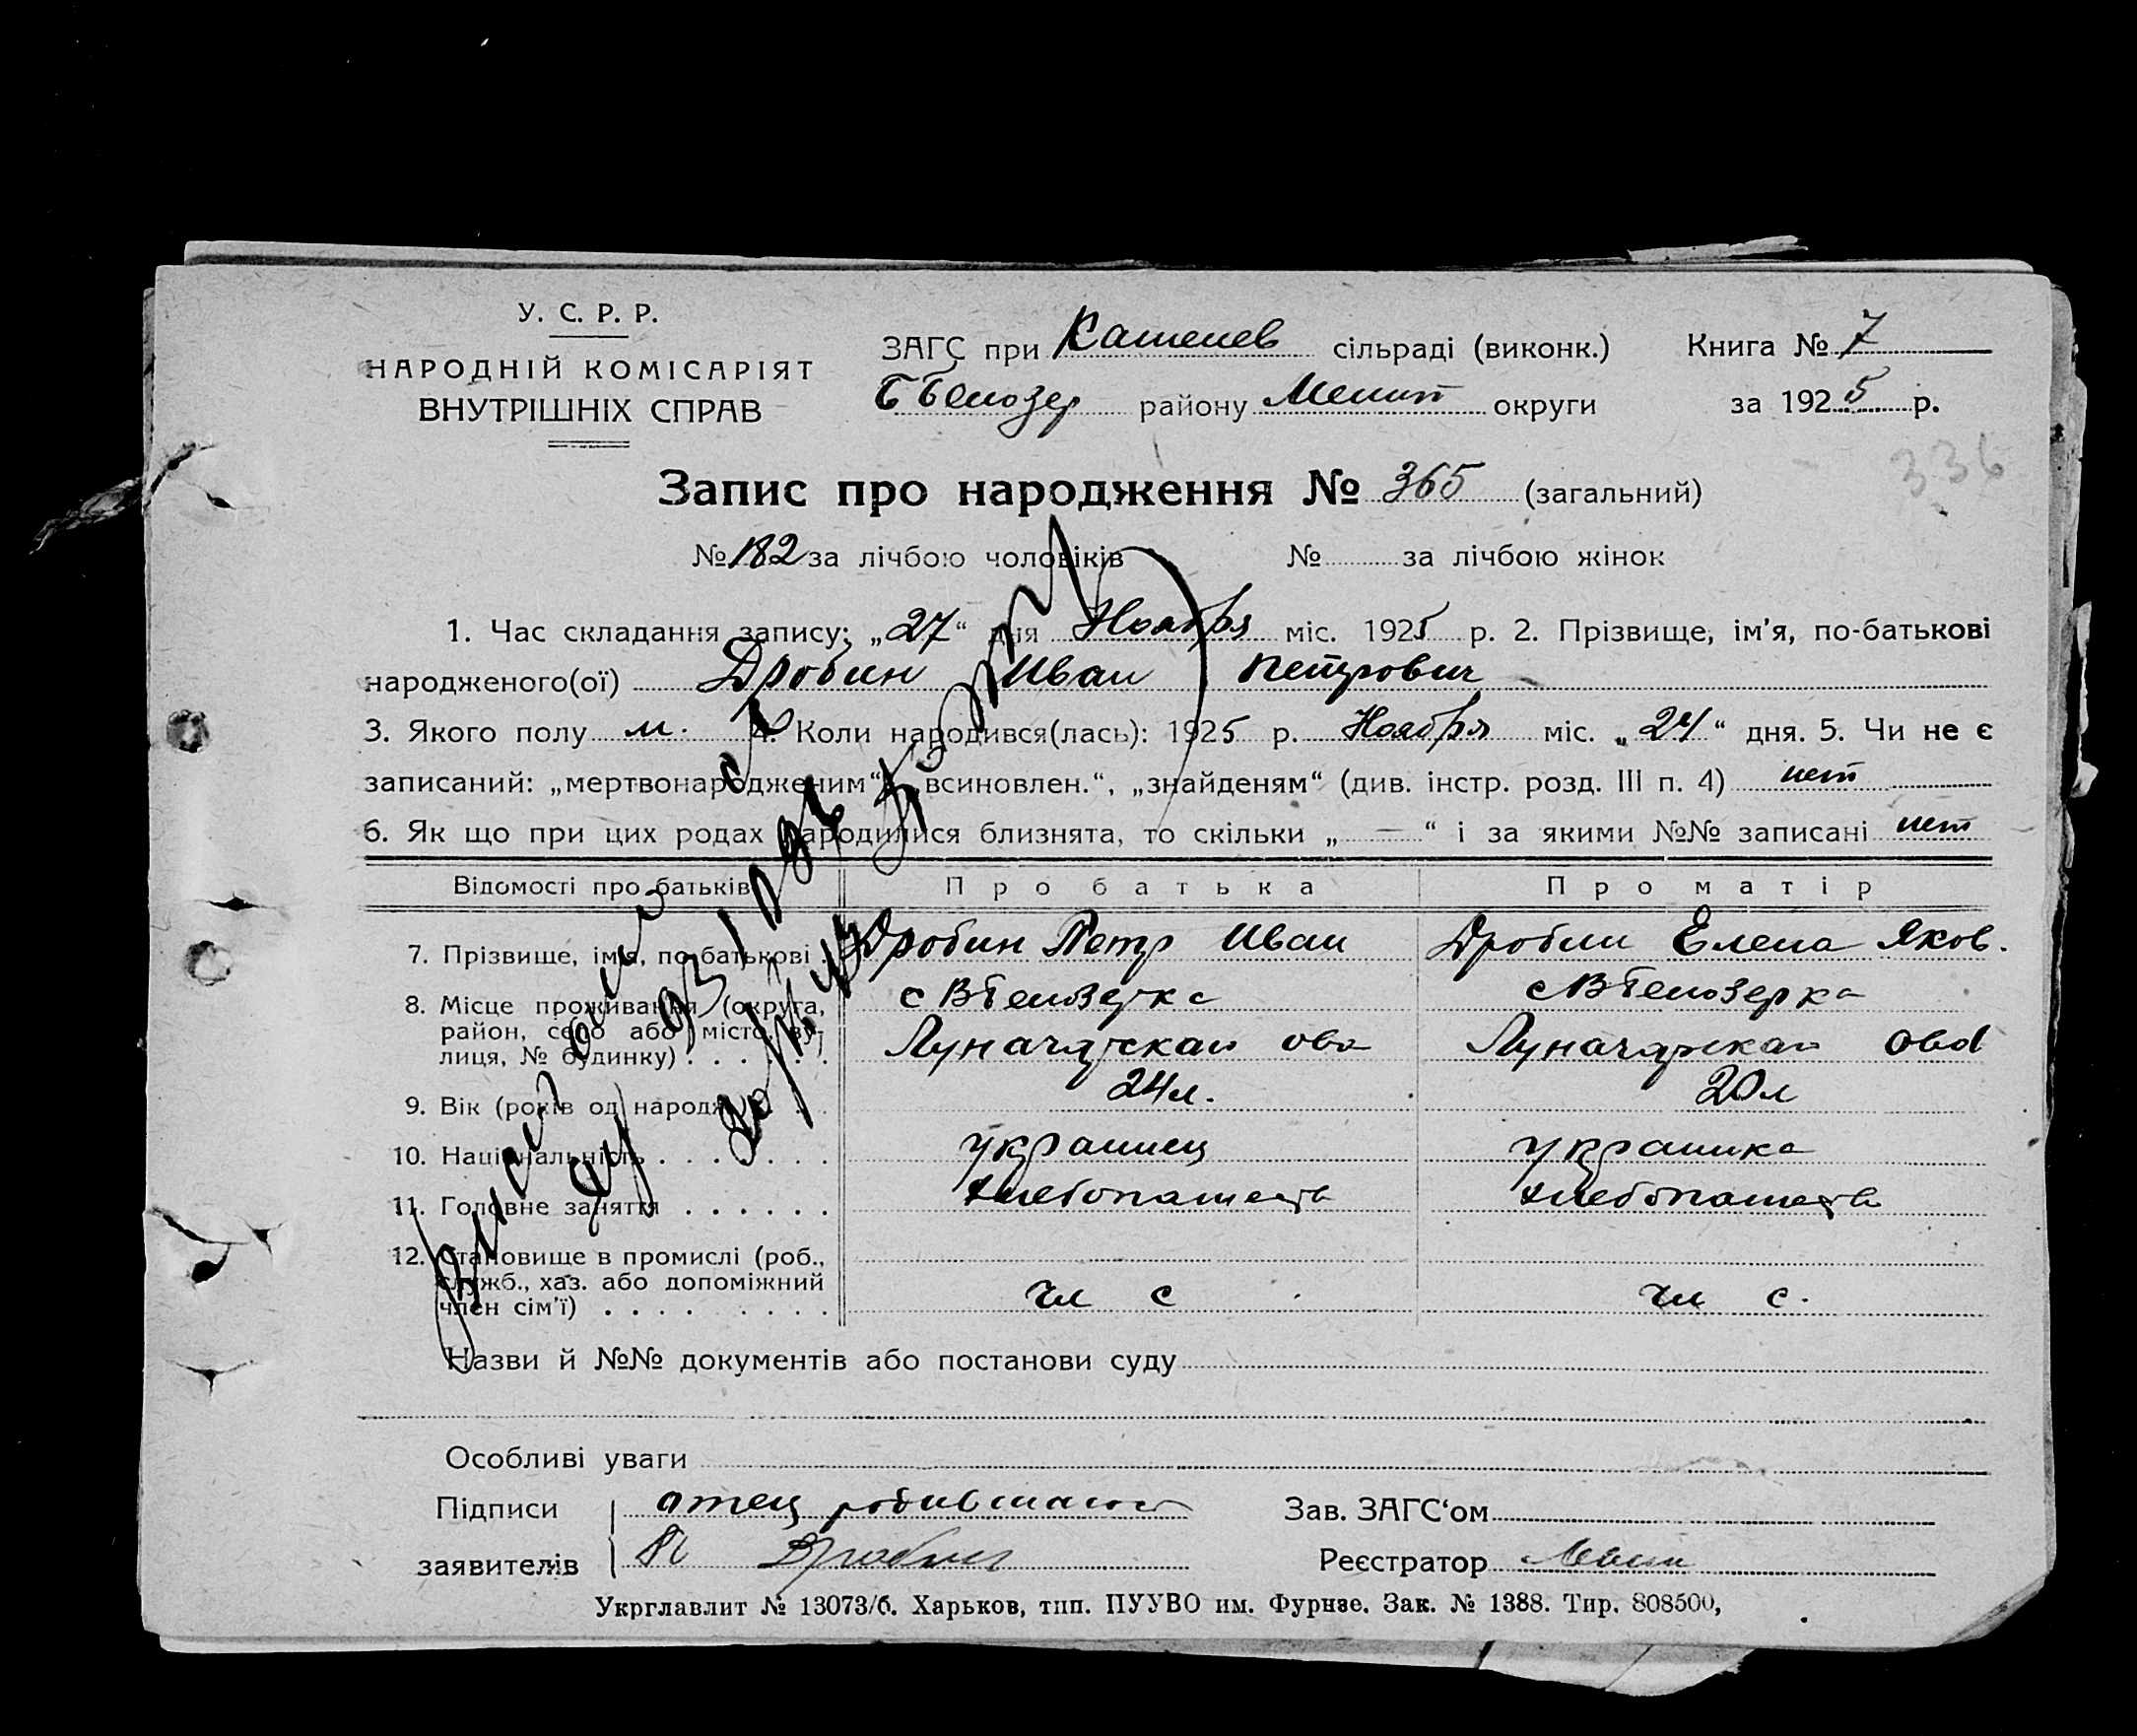 У. С. Р. Р.
НАРОДНІЙ КОМІСАРІЯТ
ВНУТРІШНІХ СПРАВ
ЗАГС при сільраді (виконк.) Книга № 7
району округи за 1925 р.
336
Запис про народження № 365 (загальний)
№ 182 за лічбою чоловіків № за лічбою жінок
1. Час складання запису: „27“ дня Ноября міс. 1925 р. 2. Прізвище, ім'я, по-батькові
народженого(ої) Дробин Иван Петрович
3. Якого полу м. 4. Коли народився(лась): 1925 р. Ноября міс. „24“ дня. 5. Чи не є
записаний: „мертвонародженим“, „всиновлен.“, „знайденям“ (див. інстр. розд. III п. 4) нет
6. Як що при цих родах народилися близнята, то скільки „ — “ і за якими №№ записані нет
Відомості про батьків Про батька Про матір
7. Прізвище, ім'я, по-батькові . Дробин Петр Иван Дробин Елена Яков.
8. Місце проживання (округа,
район, село або місто, ву-
лиця, № будинку) . . . . . .
9. Вік (років од народж.) . . . 24 л. 20 л
10. Національність . . . . . . . украинец украинка
11. Головне заняття . . . . . . хлебопашеств хлебопашеств
12. Становище в промислі (роб.,
служб., хаз. або допоміжний
член сім'ї) . . . . . . . . . чл с чл с.
Назви й №№ документів або постанови суду
Особливі уваги
Підписи отец
заявителів Дробин
Зав. ЗАГС‘ом
Реєстратор
Укрглавлит № 13073/б. Харьков, тип. ПУУВО им. Фрунзе. Зак. № 1388. Тир. 808500,